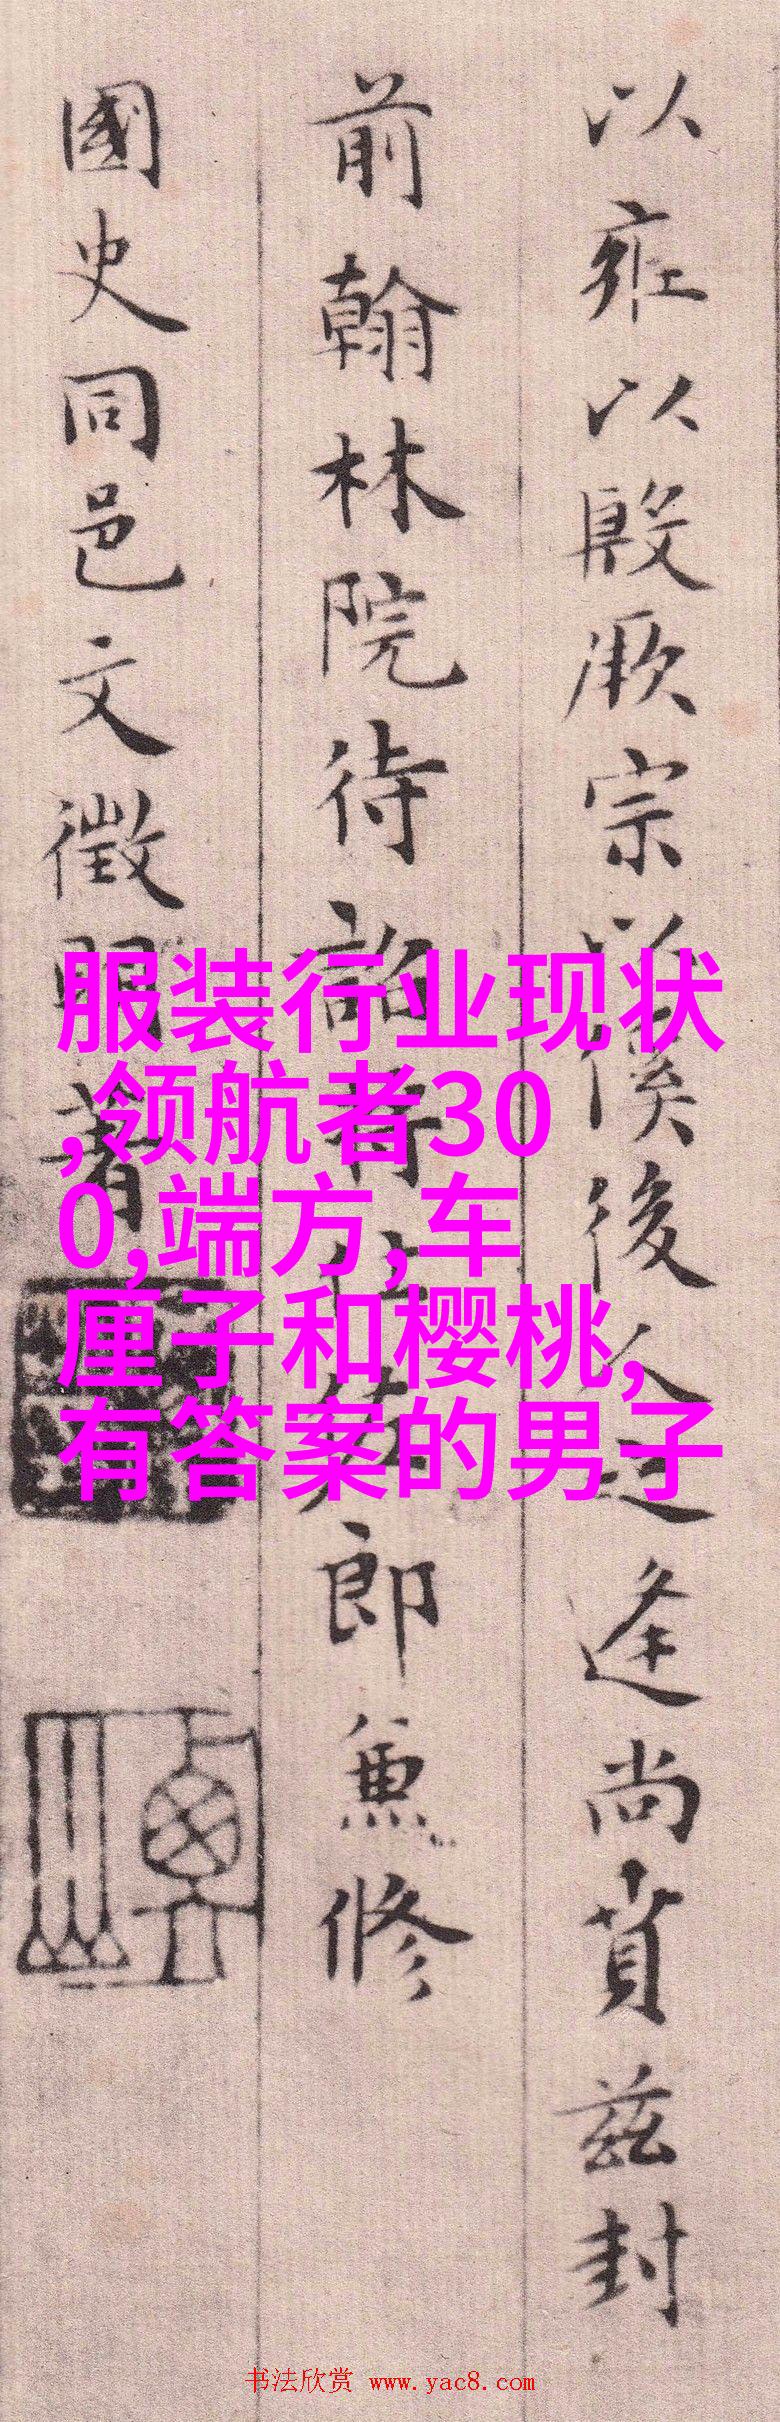 以雍以殷厥宗以傒後人逢尚賁茲封
前翰林院待詔將仕佐郎兼修
國史同邑文徵明著
服装行业现状
,领航者30
0,端方,车
厘子和樱桃,
有答案的男子
书法欣赏 www.yac8.com